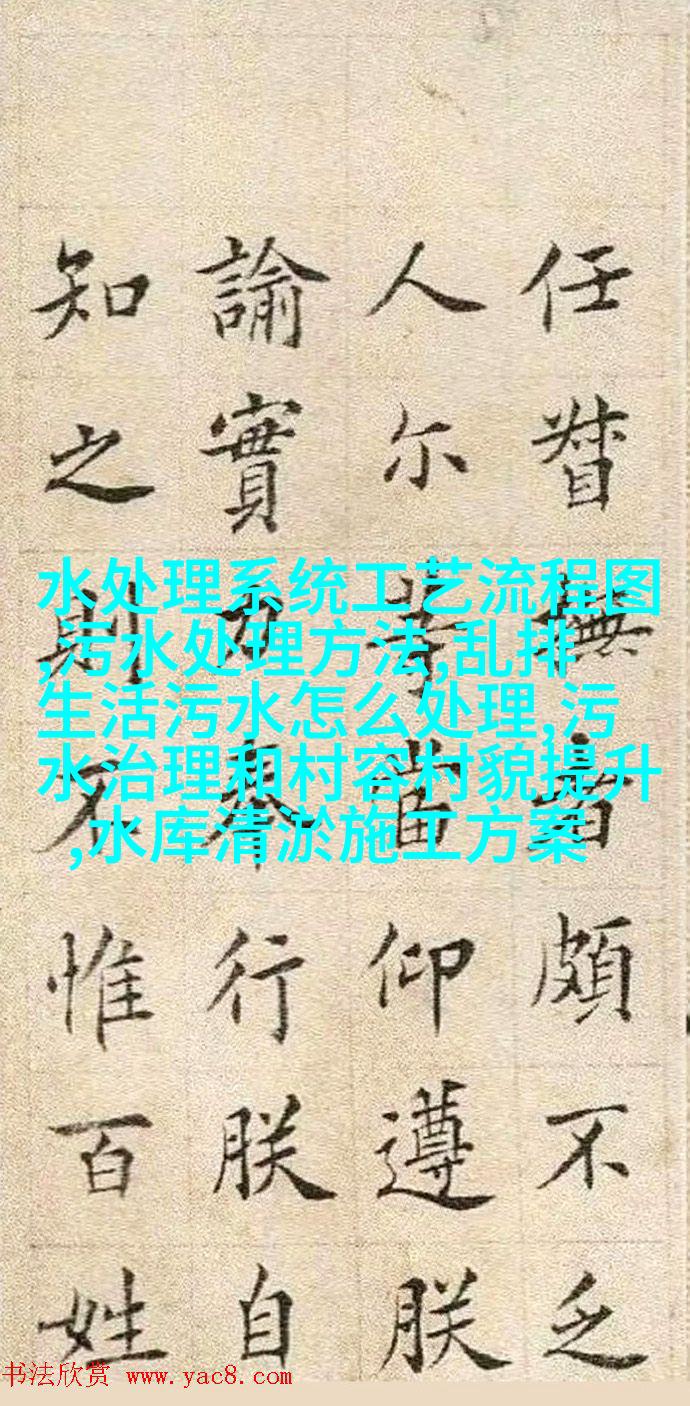 任督撫者頗不乏
人尔等當仰遵朕
諭實力奉行朕自
知之則不惟百姓
水处理系统工艺流程图
,污水处理方法,乱排
生活污水怎么处理,污
水治理和村容村貌提升
,水库清淤施工方案
书法欣赏 www.yac8.com